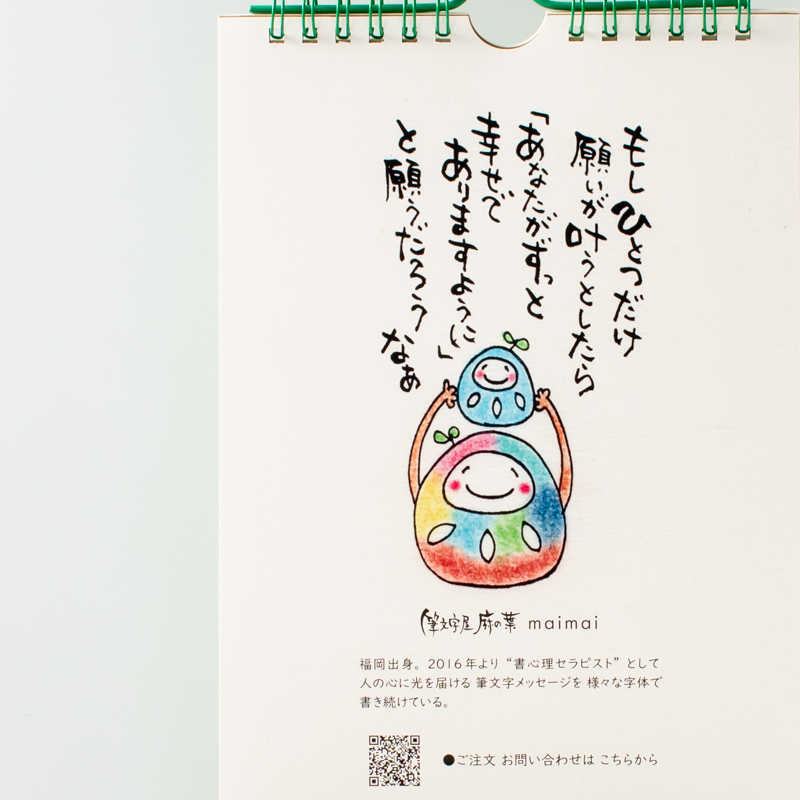 もしひとつだけ
願いが叶うとしたら
「あなたがずっと
幸せで
ありますように」
と願うだろうなぁ
筆文字屋 麻の葉 maimai
福岡出身。2016年より“書心理セラピスト”として
人の心に光を届ける 筆文字メッセージを 様々な字体で
書き続けている。
●ご注文 お問い合わせは こちらから